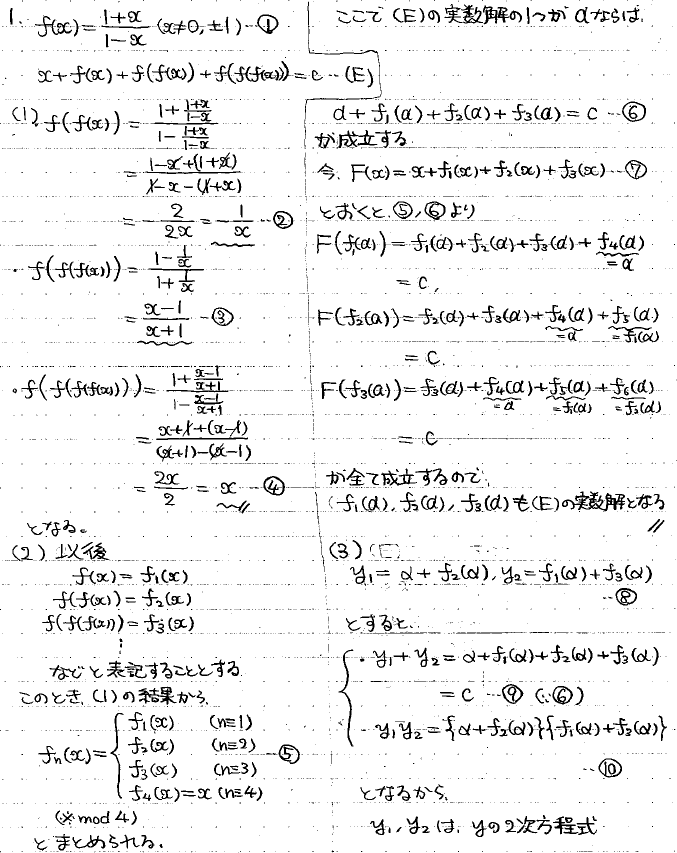 1. f(x) = (1+x)/(1-x) (x≠0, ±1) … ①
x + f(x) + f(f(x)) + f(f(f(x))) = c … (E)
(1) f(f(x)) = (1 + (1+x)/(1-x)) / (1 - (1+x)/(1-x))
= (1-x+(1+x)) / (1-x-(1+x))
= -2/(2x) = -1/x … ②
・f(f(f(x))) = (1 - 1/x) / (1 + 1/x)
= (x-1)/(x+1) … ③
・f(f(f(f(x)))) = (1 + (x-1)/(x+1)) / (1 - (x-1)/(x+1))
= (x+1+(x-1)) / ((x+1)-(x-1))
= 2x/2 = x … ④
となる。
(2) 以後
f(x) = f₁(x)
f(f(x)) = f₂(x)
f(f(f(x))) = f₃(x)
⋮
などと表記することとする
このとき、(1)の結果から、
fₙ(x) = { f₁(x) (n≡1)
f₂(x) (n≡2)
f₃(x) (n≡3)
f₄(x) = x (n≡4) … ⑤
(※ mod 4)
とまとめられる。
ここで (E)の実数解の1つが αならば、
α + f₁(α) + f₂(α) + f₃(α) = c … ⑥
が成立する
今、F(x) = x + f₁(x) + f₂(x) + f₃(x) … ⑦
とおくと、⑤, ⑥より
F(f₁(α)) = f₁(α) + f₂(α) + f₃(α) + f₄(α)
= α
= c,
F(f₂(α)) = f₂(α) + f₃(α) + f₄(α) + f₅(α)
= α = f₁(α)
= c.
F(f₃(α)) = f₃(α) + f₄(α) + f₅(α) + f₆(α)
= α = f₁(α) = f₂(α)
= c
が全て成立するので
f₁(α), f₂(α), f₃(α) も(E)の実数解となる
(3)
y₁ = α + f₂(α), y₂ = f₁(α) + f₃(α)
… ⑧
とすると、
・y₁ + y₂ = α + f₁(α) + f₂(α) + f₃(α)
= c … ⑨ (∵⑥)
・y₁y₂ = {α + f₂(α)}{f₁(α) + f₃(α)}
… ⑩
となるから、
y₁, y₂ は、yの2次方程式